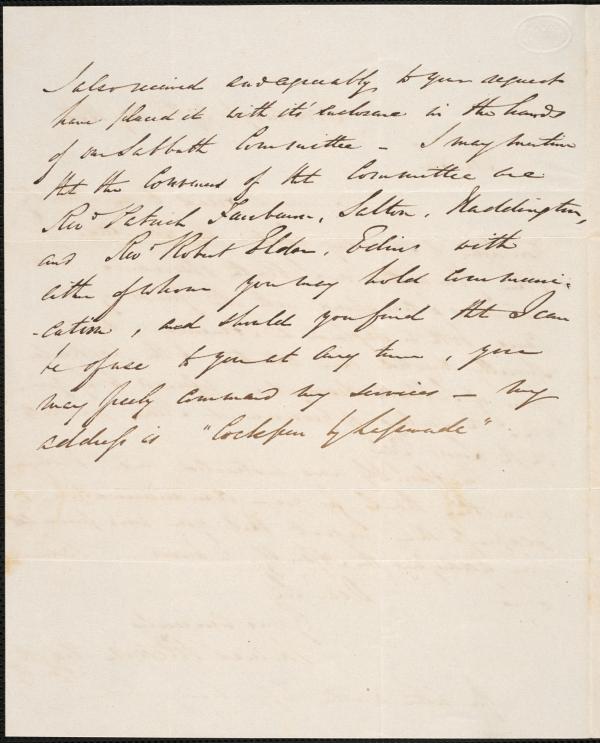 I also received and agreeably to your request
have placed it with its' enclosure in the hands
of our Sabbath Committee – I may mention
tht the Conveners of tht Committee are
Revd Patrick Fairbairn, Salton, Haddington,
and Revd Robert Elder, Edinr with
either of whom you may hold communi-
-cation, and should you find tht I can
be of use to you at any time, you
may freely command my services – my
address is "Cockpen by Lasswade".